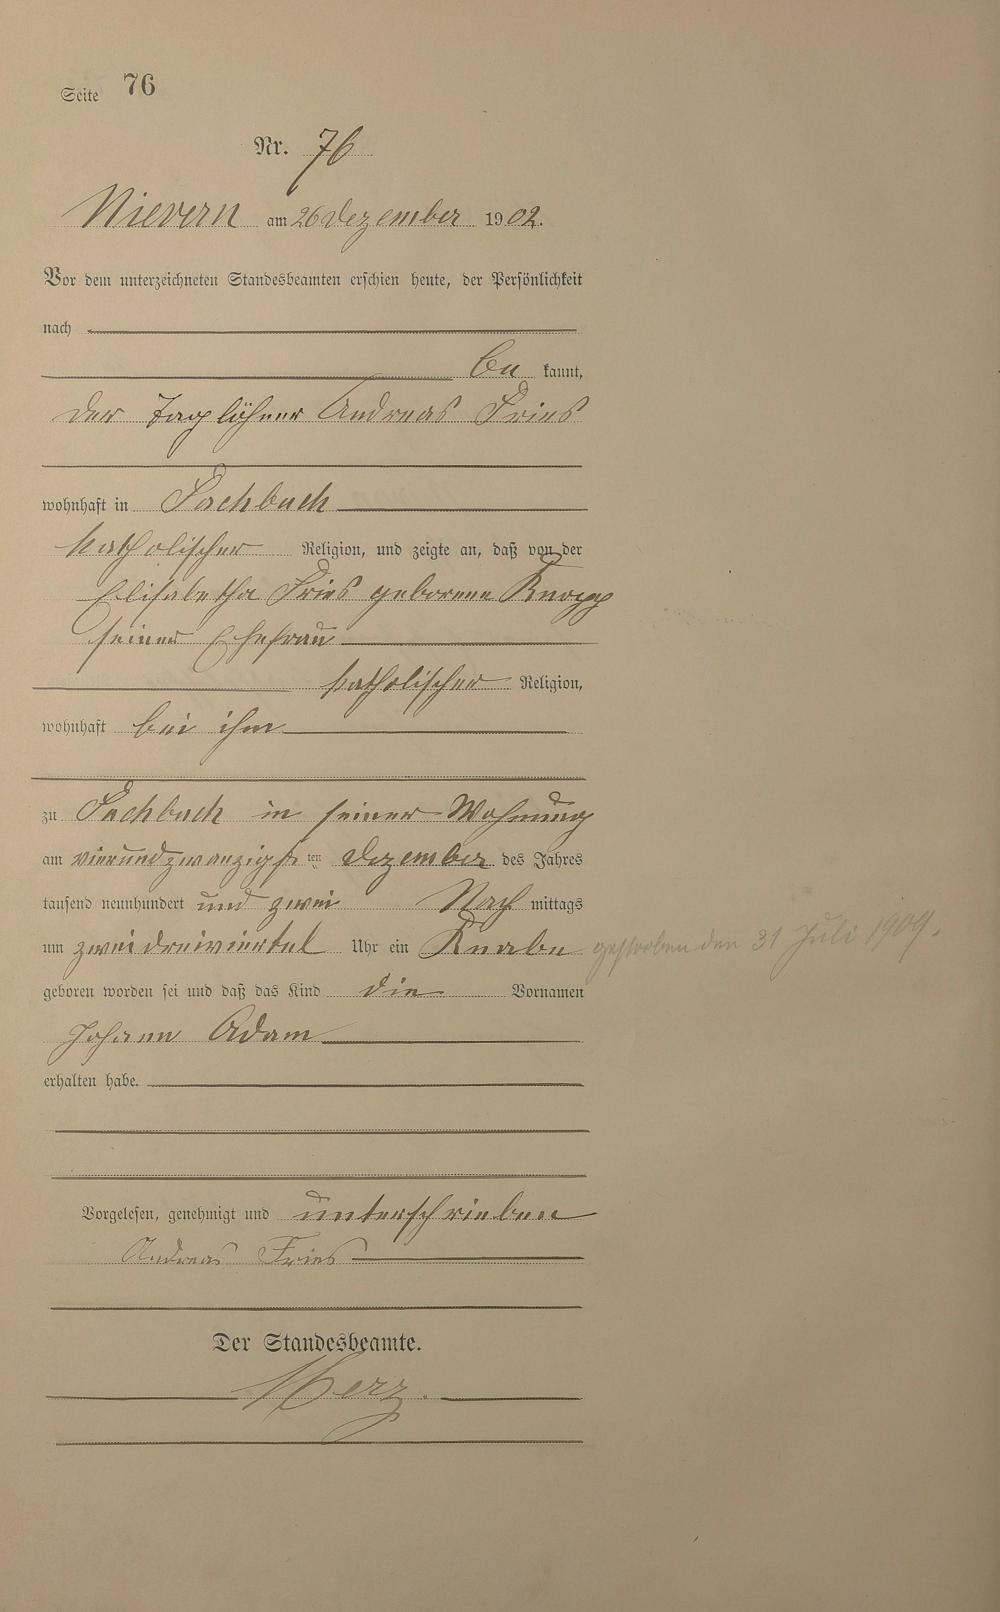 Seite 76
Nr. 76
Nievern am 26 Dezember 1902.
Vor dem unterzeichneten Standesbeamten erschien heute, der Persönlichkeit
nach
be kannt,
der Taglöhner Andreas Fries
wohnhaft in Fachbach
katholischer Religion, und zeigte an, daß von der
Elisabetha Fries geborene Knopp
seiner Ehefrau
katholischer Religion,
wohnhaft bei ihm
zu Fachbach in seiner Wohnung
am vierundzwanzigsten Dezember des Jahres
tausend neunhundert und zwei Nach mittags
um zwei dreiviertel Uhr ein Knabe gestorben den 31 Juli 1909.
geboren worden sei und daß das Kind die Vornamen
Johann Adam
erhalten habe.
Vorgelesen, genehmigt und unterschrieben
Andreas Fries
Der Standesbeamte.
Herz.